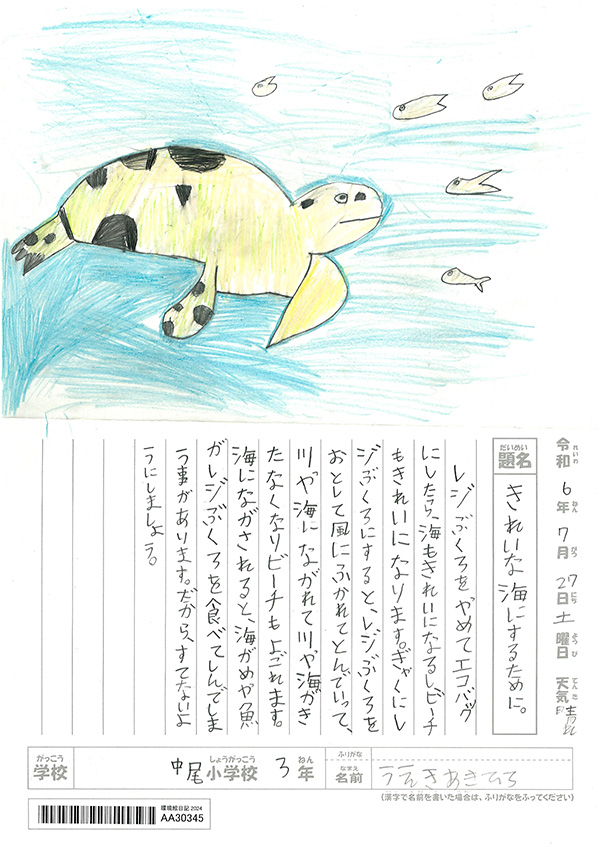 令和6年7月27日土曜日 天気 晴
れいわ ねん がつ にち ようび てんき
だいめい
題名
きれいな海にするために。
レジぶくろをやめてエコバッグ
にしたら、海もきれいになるしビーチ
もきれいになります。ぎゃくにレ
ジぶくろにすると、レジぶくろを
おとして風にふかれてとんでいって、
川や海にながれて川や海がき
たなくなりビーチもよごれます。
海にながされると、海がめや魚
がレジぶくろを食べてしんでしま
う事があります。だから、すてないよ
うにしましょう。
がっこう しょうがっこう ねん ふりがな
学校 中尾小学校 3年 なまえ 名前 うえきあきひろ
(漢字で名前を書いた場合は、ふりがなをふってください)
環境絵日記 2024
AA30345